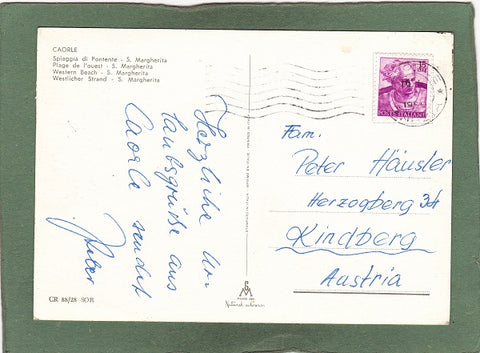 CAORLE
Spiaggia di Pontente - S. Margherita
Plage de l'ouest - S. Margherita
Western Beach - S. Margherita
Westlicher Strand - S. Margherita
Herzliche Ur-
laubsgrüße aus
Caorle sendet
Peter
CR 88/28 SOR
Fam.
Peter Häusler
Herzogberg
Kindberg
Austria
POSTE ITALIANE